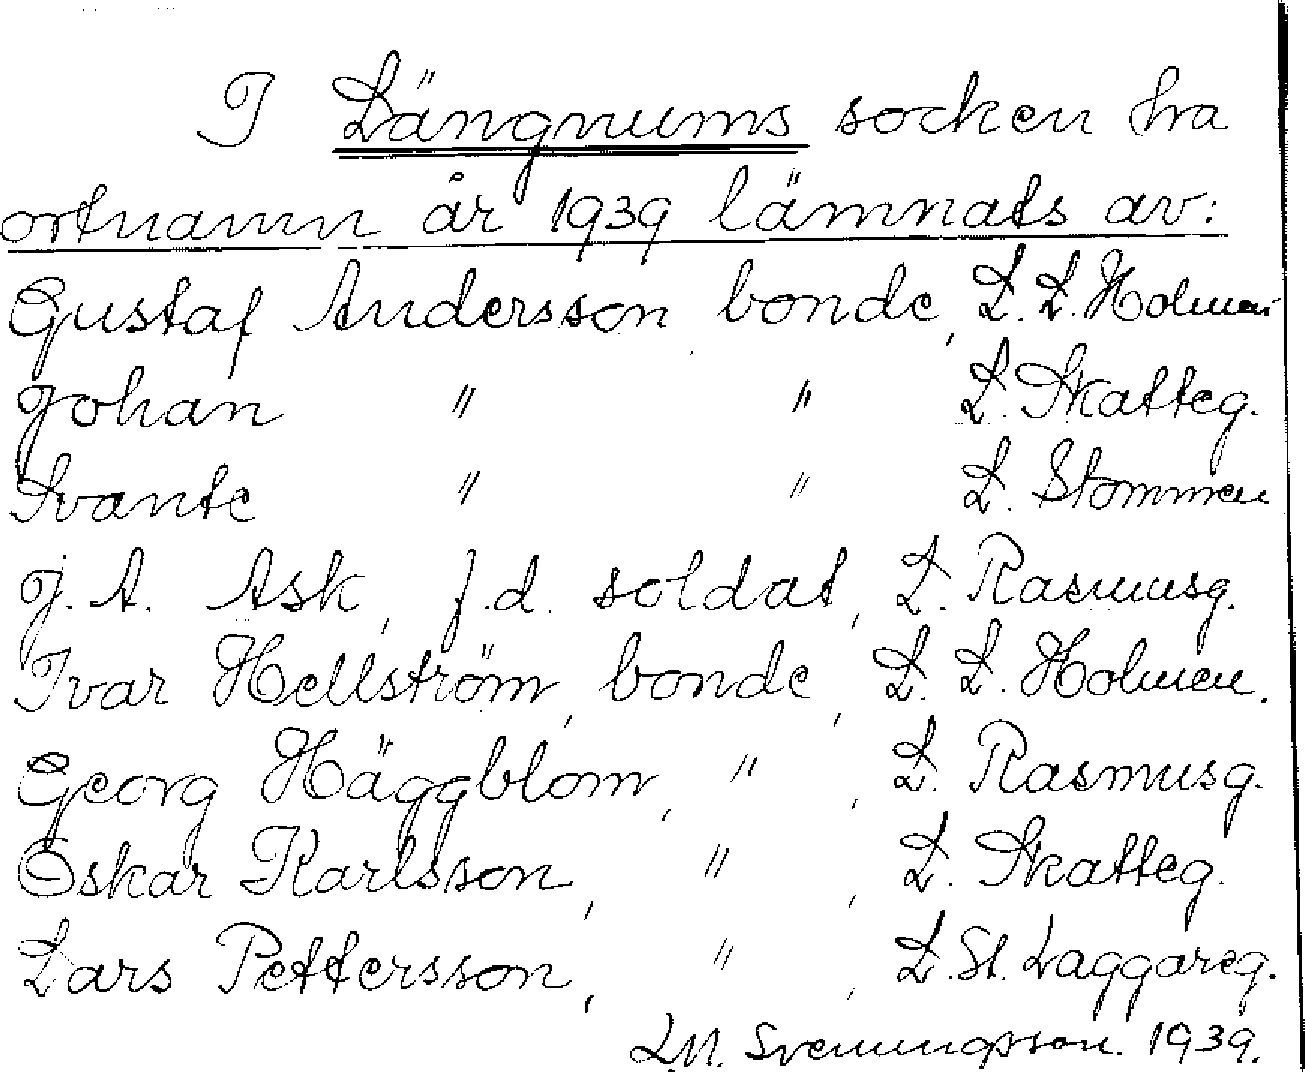 I Längnums socken ha
ortnamn år 1939 lämnats av:
Gustaf Andersson bonde, L. L. Holmen
Johan " " L. Skatteg.
Svante " " L. Stommen
J. A. Ask, f.d. soldat, L. Rasmusg.
Ivar Hellström, bonde, L. L. Holmen.
Georg Häggblom, " , L. Rasmusg.
Oskar Karlsson, " , L. Skatteg.
Lars Pettersson, " , L. St. Laggareg.
L.M. Svenungsson. 1939.